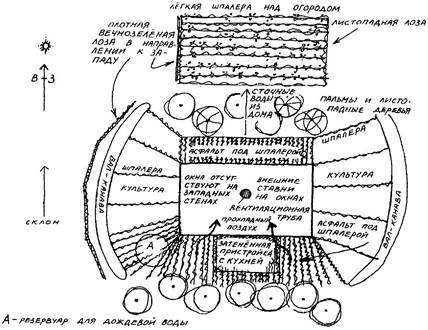 ЛЁГКАЯ ШПАЛЕРА НАД ОГОРОДОМ
ЛИСТОПАДНАЯ ЛОЗА
ПЛОТНАЯ
ВЕЧНОЗЕЛЁНАЯ
ЛОЗА В НАПРАВ-
ЛЕНИИ К ЗА-
ПАДУ
В-З
СТОЧНЫЕ
ВОДЫ
ИЗ
ДОМА
ПАЛЬМЫ И ЛИСТО-
ПАДНЫЕ ДЕРЕВЬЯ
АСФАЛЬТ ПОД ШПАЛЕРОЙ
ШПАЛЕРА
ВАЛ-КАНАВА
ШПАЛЕРА
КУЛЬТУРА
ОКНА ОТСУТ-
СТВУЮТ НА
ЗАПАДНЫХ
СТЕНАХ
ВНЕШНИЕ
СТАВНИ
НА ОКНАХ
ВЕНТИЛЯЦИОННАЯ
ТРУБА
КУЛЬТУРА
ВАЛ-КАНАВА
СКЛОН
ПРОХЛАДНЫЙ
ВОЗДУХ
АСФАЛЬТ ПОД
ШПАЛЕРОЙ
А
ЗАТЕНЁННАЯ
ПРИСТРОЙКА
С КУХНЕЙ
А-РЕЗЕРВУАР ДЛЯ ДОЖДЕВОЙ ВОДЫ